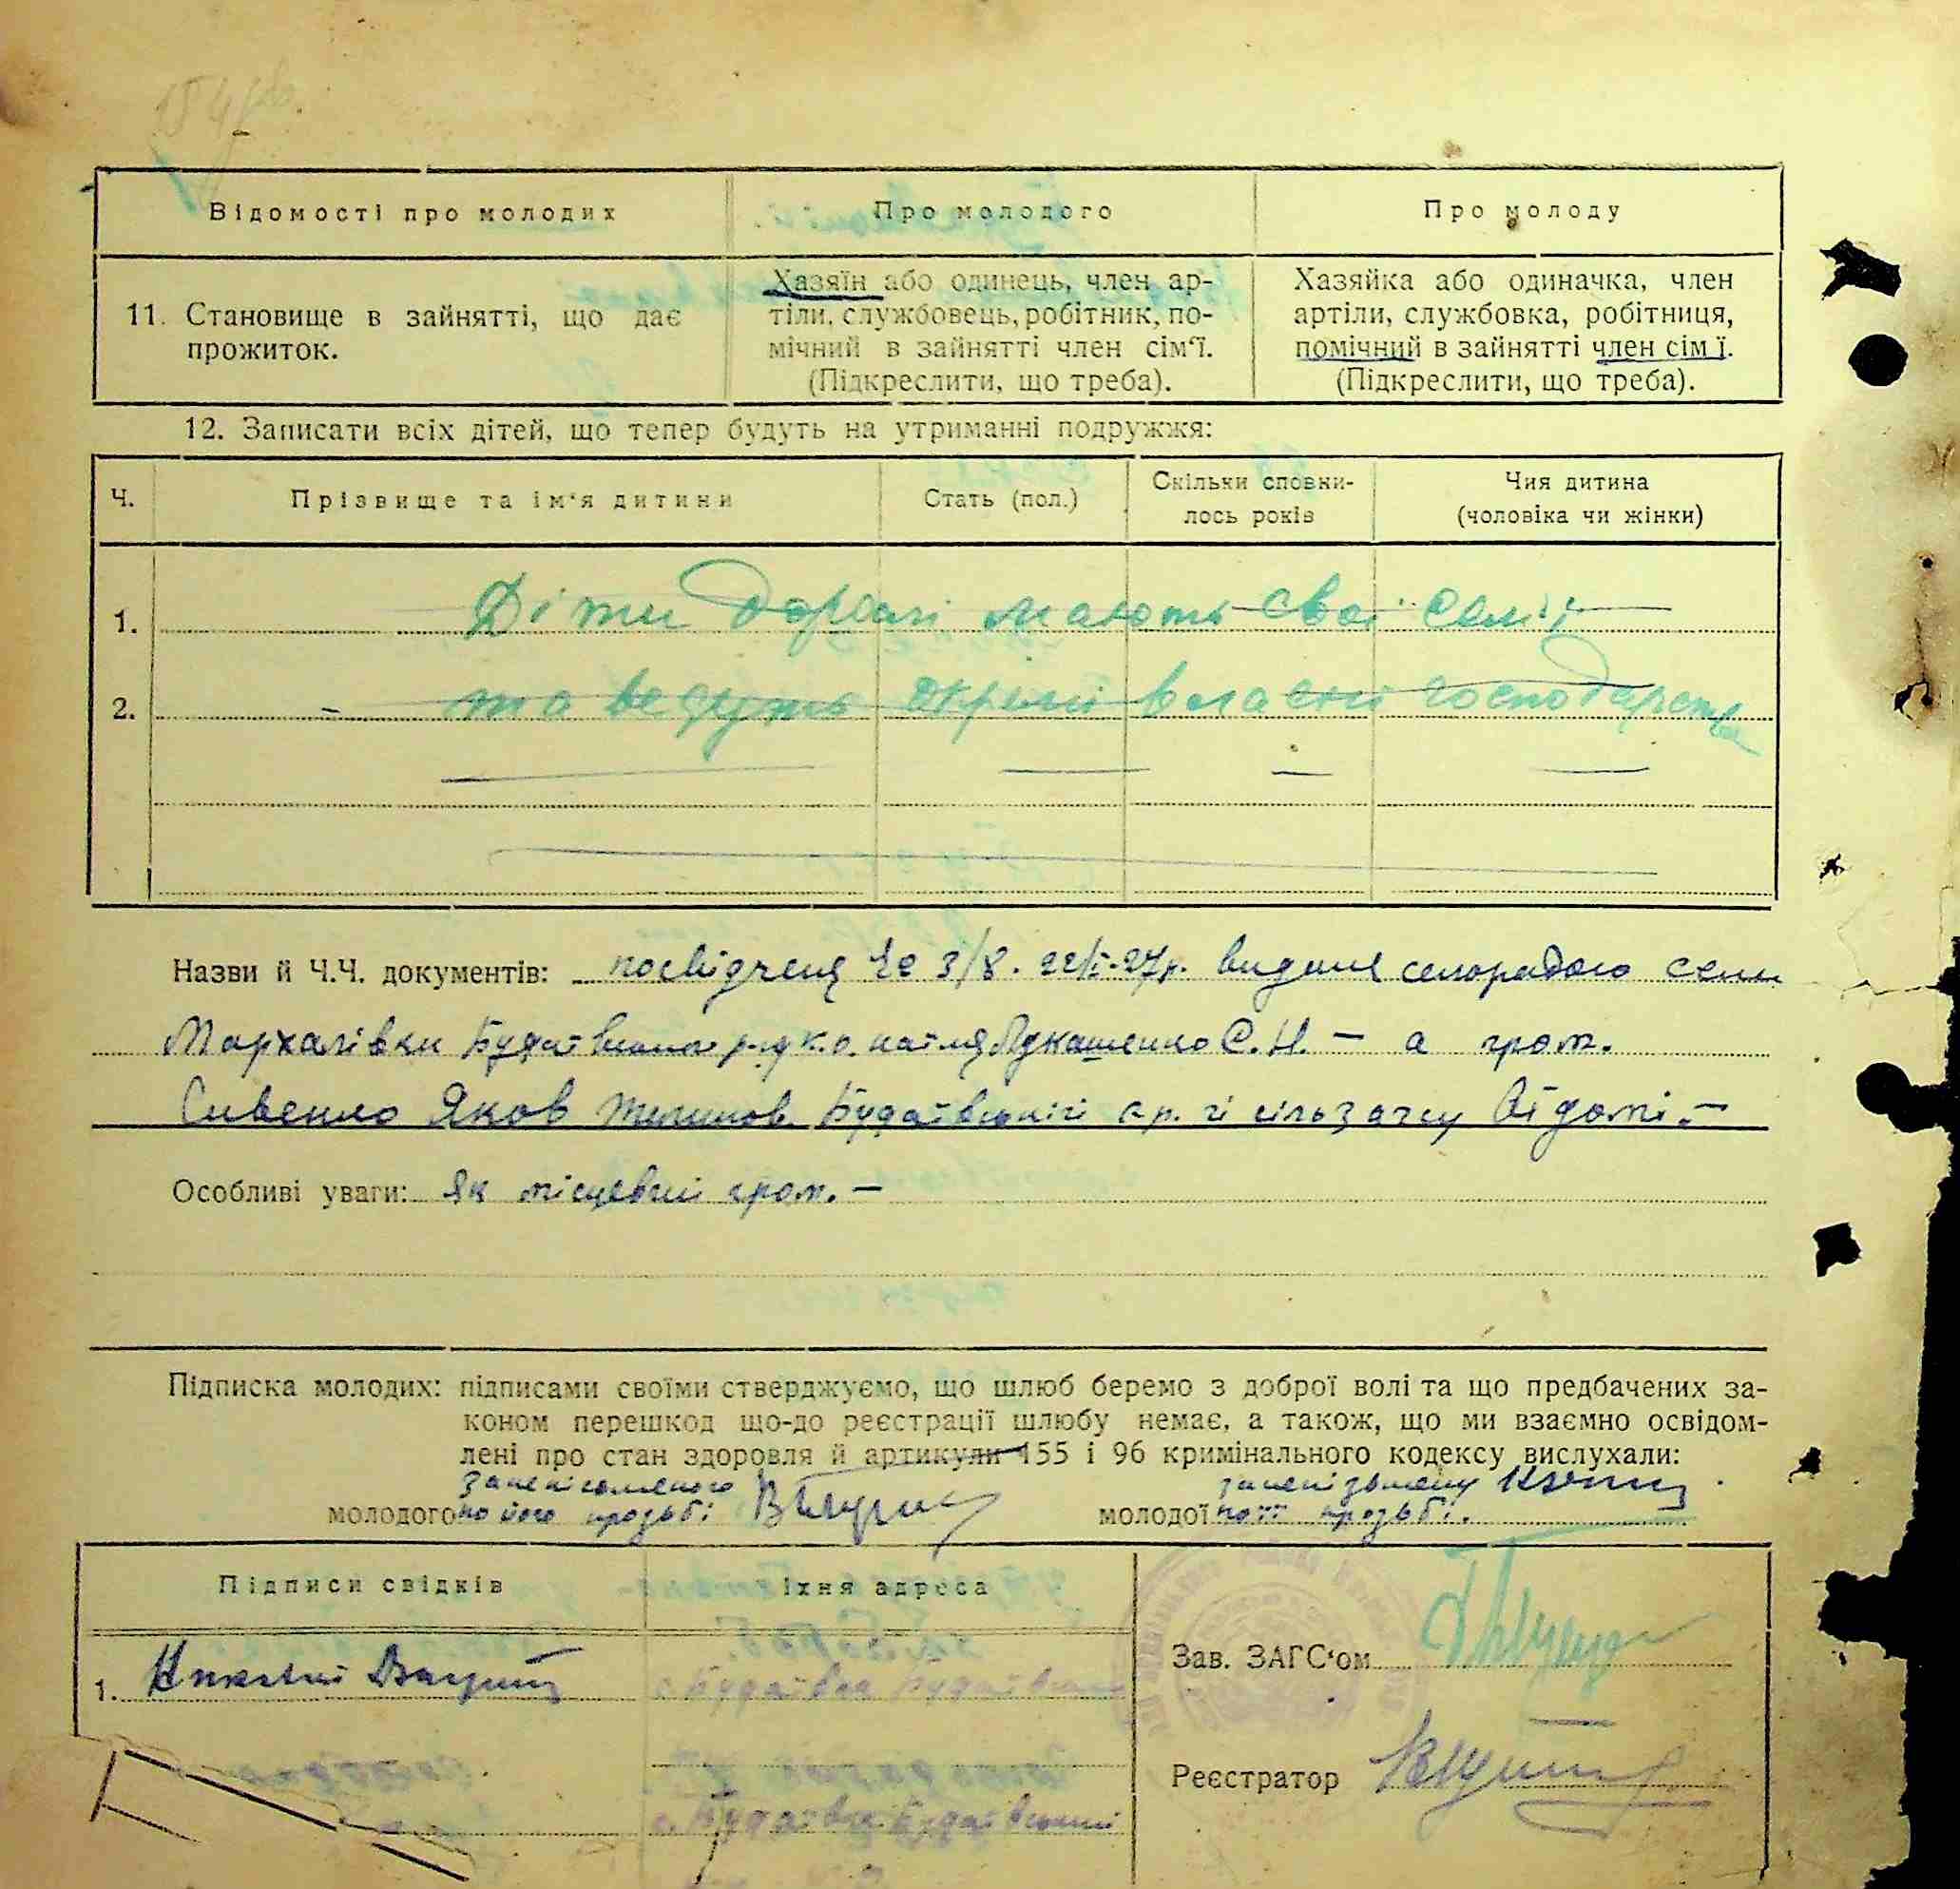 Відомості про молодих
Про молодого
Про молоду
11. Становище в зайнятті, що дає
прожиток.
Хазяїн або одинець, член ар-
тіли, службовець, робітник, по-
мічний в зайнятті член сім'ї.
(Підкреслити, що треба).
Хазяйка або одиначка, член
артіли, службовка, робітниця,
помічний в зайнятті член сім ї.
(Підкреслити, що треба).
12. Записати всіх дітей, що тепер будуть на утриманні подружжя:
Ч.
Прізвище та ім'я дитини
Стать (пол.)
Скільки сповни-
лось років
Чия дитина
(чоловіка чи жінки)
1. Діти дорослі мають свої семії
2. та ведуть окремі власні господарства
Назви й Ч.Ч. документів: посвідченя № 3/8. 22/I-27р. видане сельрадою села
Мархалівки Будаївського р-ну К.о. на імя Лукашенко Є. Н. – а гром.
Сивенко Яков Будаївській сільраді відомі. –
Особливі уваги: як місцевий гром. –
Підписка молодих: підписами своїми стверджуємо, що шлюб беремо з доброї волі та що предбачених за-
коном перешкод що-до реєстрації шлюбу немає, а також, що ми взаємно освідом-
лені про стан здоровля й артикули 155 і 96 кримінального кодексу вислухали:
молодого по його прозьбі
молодої по її прозьбі.
Підписи свідків
їхня адреса
1. с. Будаївка Будаївськ
с. Будаївка Будаївський
Зав. ЗАГС'ом
Реєстратор